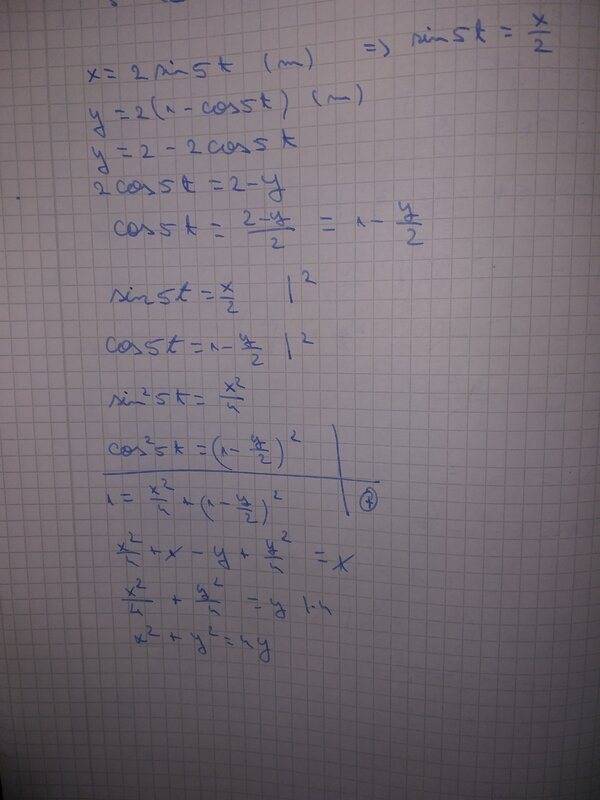 x = 2 sin5t (m) => sin5t = x/2
y = 2(1 - cos5t) (m)
y = 2 - 2cos5t
2cos5t = 2-y
cos5t = (2-y)/2 = 1 - y/2
sin5t = x/2 |²
cos5t = 1 - y/2 |²
sin²5t = x²/4
cos²5t = (1 - y/2)²
1 = x²/4 + (1 - y/2)² ⊕
x²/4 + 1 - y + y²/4 = 1
x²/4 + y²/4 = y |·4
x² + y² = 4y